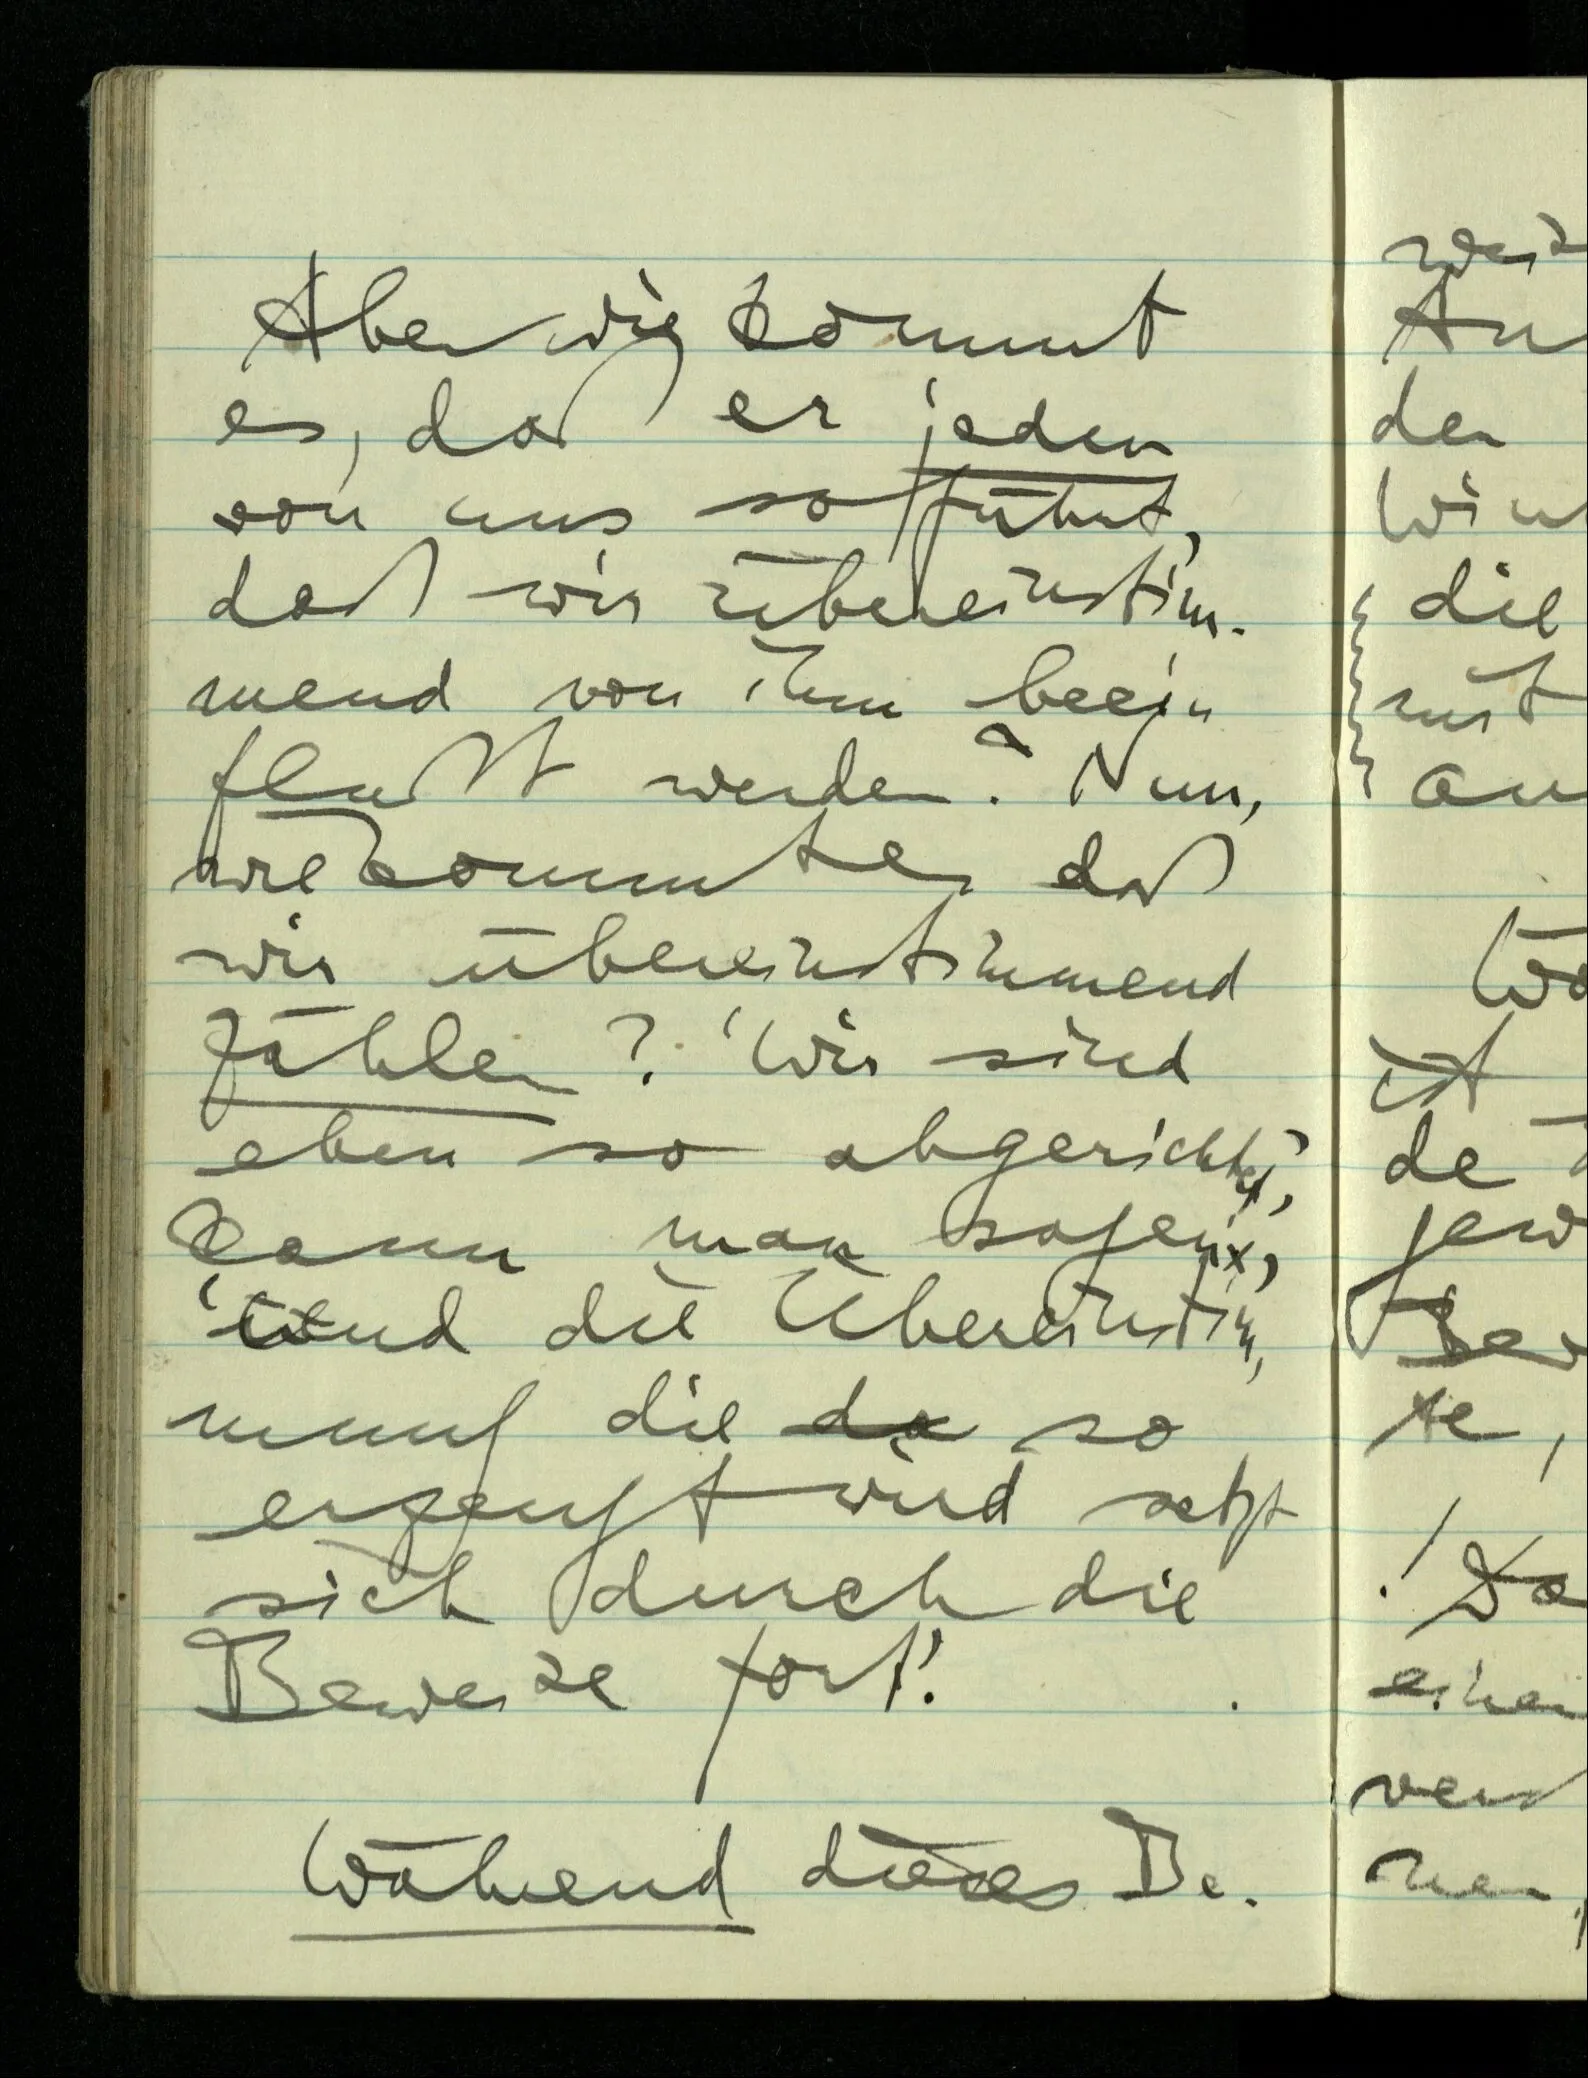 Aber wie kommt
es, daß er jeden
von uns so führt,
daß wir übereinstim-
mend von ihm beein
flußt werden? Nun,
wie kommt es daß
wir übereinstimmend
zählen? ‘Wir sind
eben so abgerichtet’,
kann man sagen,
‘und die Überein̄stim̄-
mung die da so
erzeugt wird setzt
sich durch die
Beweise fort’.
Während dieses Be-
weis
An
den
Win
die
mit
au
Wä
ist
de
te,
einen
ver
nen